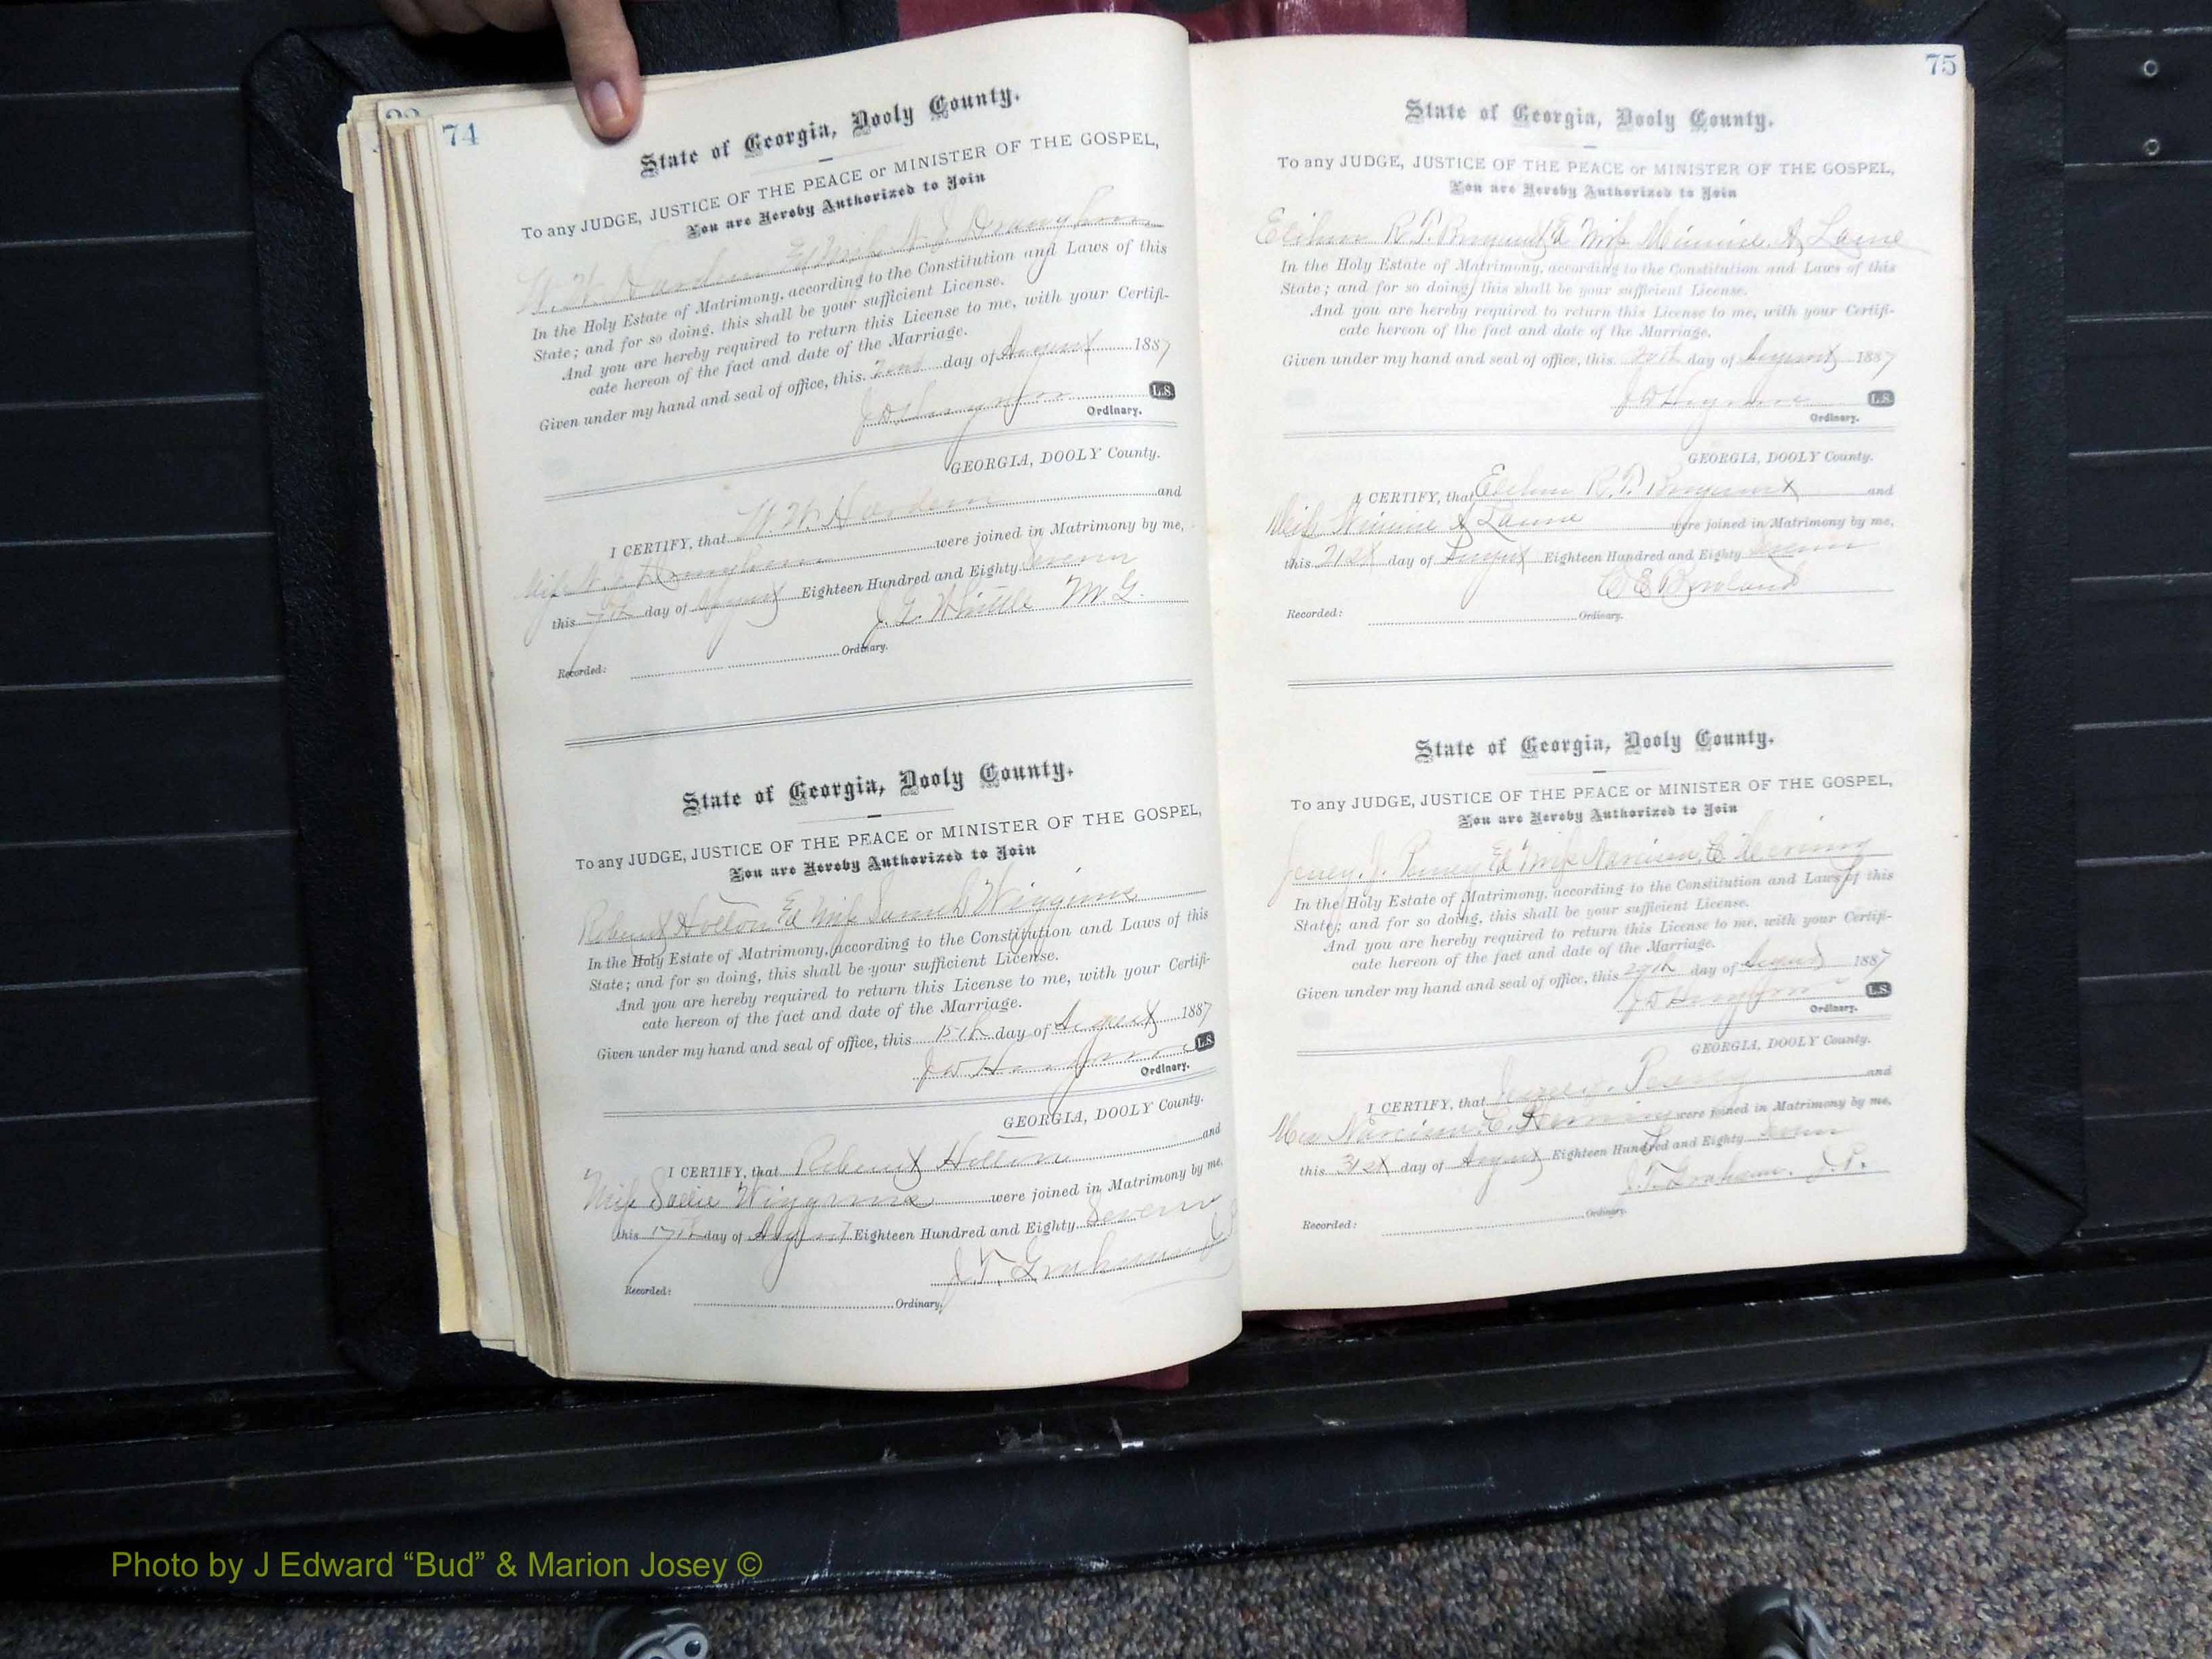 74
State of Georgia, Dooly County.
To any JUDGE, JUSTICE OF THE PEACE or MINISTER OF THE GOSPEL,
You are Hereby Authorized to Join
W. W. Harden
In the Holy Estate of Matrimony, according to the Constitution and Laws of this
State; and for so doing, this shall be your sufficient License.
And you are hereby required to return this License to me, with your Certifi-
cate hereon of the fact and date of the Marriage.
Given under my hand and seal of office, this 2nd day of August 1887
L.S.
Ordinary.
GEORGIA, DOOLY County.
I CERTIFY, that W. W. Harden and
Miss were joined in Matrimony by me,
this 7th day of August Eighteen Hundred and Eighty Seven
M. G.
Recorded: Ordinary.
State of Georgia, Dooly County.
To any JUDGE, JUSTICE OF THE PEACE or MINISTER OF THE GOSPEL,
You are Hereby Authorized to Join
Robert Holton & Miss Sarah Wiggins
In the Holy Estate of Matrimony, according to the Constitution and Laws of this
State; and for so doing, this shall be your sufficient License.
And you are hereby required to return this License to me, with your Certifi-
cate hereon of the fact and date of the Marriage.
Given under my hand and seal of office, this 15th day of August 1887
L.S.
Ordinary.
GEORGIA, DOOLY County.
I CERTIFY, that Robert Holton and
Miss Sallie Wiggins were joined in Matrimony by me,
this 17th day of August Eighteen Hundred and Eighty Seven
J. T. Graham
Recorded: Ordinary.
75
State of Georgia, Dooly County.
To any JUDGE, JUSTICE OF THE PEACE or MINISTER OF THE GOSPEL,
You are Hereby Authorized to Join
R. P. & Miss Minnie A
In the Holy Estate of Matrimony, according to the Constitution and Laws of this
State; and for so doing, this shall be your sufficient License.
And you are hereby required to return this License to me, with your Certifi-
cate hereon of the fact and date of the Marriage.
Given under my hand and seal of office, this day of August 1887
L.S.
Ordinary.
GEORGIA, DOOLY County.
I CERTIFY, that R. P. and
Miss Minnie A were joined in Matrimony by me,
this 21st day of August Eighteen Hundred and Eighty Seven
Recorded: Ordinary.
State of Georgia, Dooly County.
To any JUDGE, JUSTICE OF THE PEACE or MINISTER OF THE GOSPEL,
You are Hereby Authorized to Join
J. & Miss
In the Holy Estate of Matrimony, according to the Constitution and Laws of this
State; and for so doing, this shall be your sufficient License.
And you are hereby required to return this License to me, with your Certifi-
cate hereon of the fact and date of the Marriage.
Given under my hand and seal of office, this day of August 1887
L.S.
Ordinary.
GEORGIA, DOOLY County.
I CERTIFY, that and
were joined in Matrimony by me,
this 31st day of August Eighteen Hundred and Eighty Seven
J. T. Graham. J. P.
Recorded: Ordinary.
Photo by J Edward “Bud” & Marion Josey ©